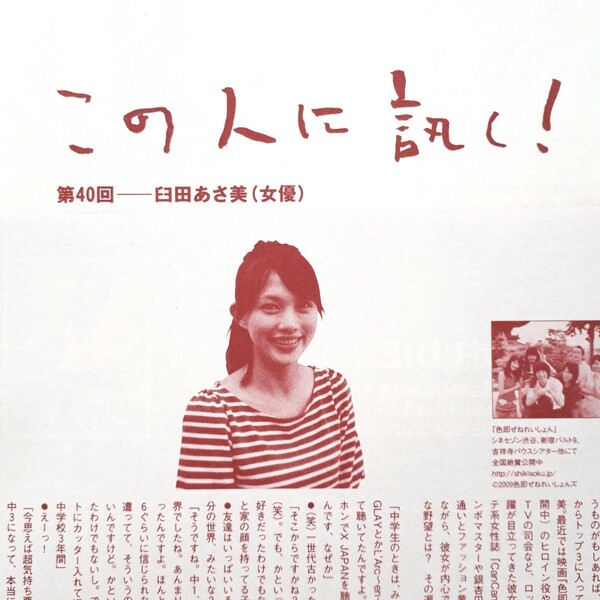 この人に訊く!
第40回——臼田あさ美(女優)
『色即ぜねれいしょん』
シネセゾン渋谷、新宿バルト9、
吉祥寺バウスシアター他にて
全国絶賛公開中
http://shikisoku.jp/
©2009色即ぜねれいしょんズ
うものがもしあ
からトップ3に入って
美。最近では映画『色即
開中)のヒロイン役や
TVの司会など、ロッ
躍が目立ってきた彼
テ系女性誌『CanCam
ンボマスターや銀杏B
通いとファッション業
ながら、彼女が内心で
な野望とは? その過
「中学生のときは、み
て聴いてたんです
GLAYとかL'Arc〜en
ホンでX JAPANを聴
んです、なぜか」
●(笑)一世代古かった
「そこからですかね
(笑)。でも、かといっ
好きだったわけでも
と家の顔を持ってる子
●友達はいっぱいいる
分の世界、みたいな
「そうですね。中1、
界でしたね。あんま
ったんですよ。ほん
6ぐらいに信じられな
遭ってて。そういうの
いんですけど。かと
たわけでもないし、で
トにカッター入れて
中学校3年間」
●えーっ!
「今思えば超気持ち悪
中3になって、本当に